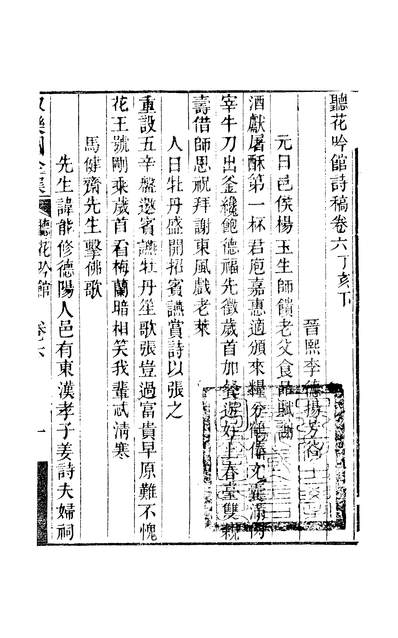 聽花吟館詩稿卷六丁亥下
晉熙李德揚芳
元日邑侯楊玉生師饋老父食品賦謝
酒獻屠酥第一杯君庖嘉惠適頒來糧分
宰牛刀出釜纔飽德福先徵歲首加餐遊好上春臺雙親
壽借師恩祝拜謝東風戲老萊
人日牡丹盛開招賓讌賞詩以張之
重設五辛盤邀賓讌牡丹笙歌張豈過富貴早原難不愧
花王號剛乘歲首看梅蘭暗相笑我輩忒清寒
馬健齋先生擊佛歌
先生諱能修德陽人邑有東漢孝子姜詩夫婦祠
樂園全集
聽花吟館
卷六
一